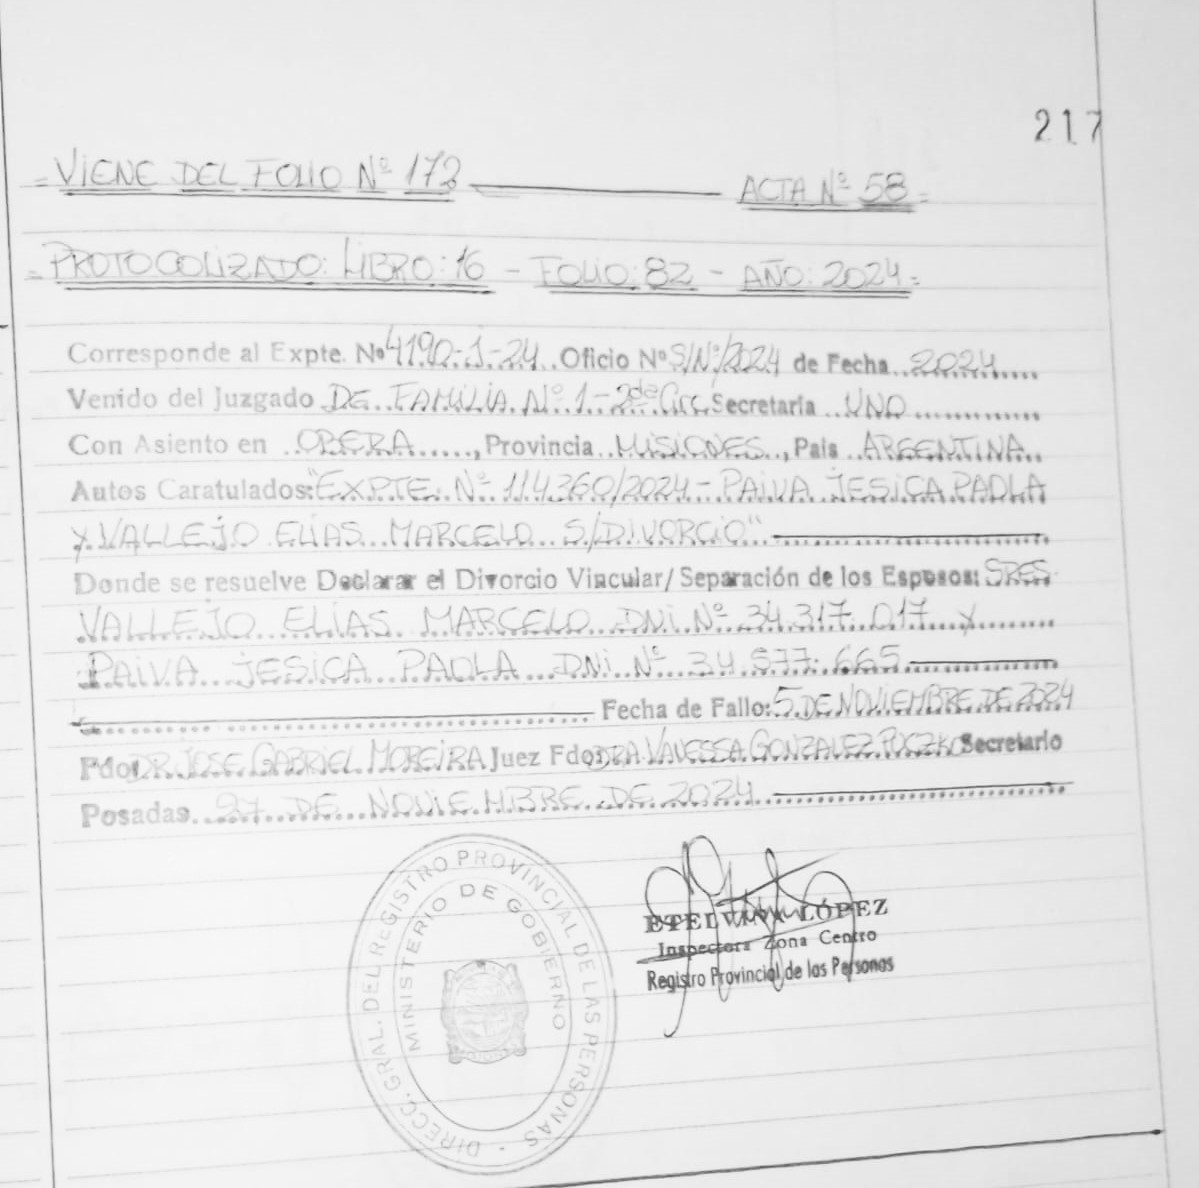 217
= VIENE DEL FOLIO Nº 172 ——— ACTA Nº 58 =
= PROTOCOLIZADO: LIBRO: 16 - FOLIO: 82 - AÑO: 2024 =
Corresponde al Expte. Nº 4190-J-24 Oficio Nº S/Nº/2024 de Fecha 2024
Venido del Juzgado DE FAMILIA Nº 1 - 2da Circ. Secretaría UNO
Con Asiento en OBERA, Provincia MISIONES, País ARGENTINA
Autos Caratulados: "EXPTE. Nº 114360/2024 - PAIVA JESICA PAOLA
Y VALLEJO ELIAS MARCELO S/DIVORCIO"
Donde se resuelve Declarar el Divorcio Vincular/ Separación de los Esposos: SRES.
VALLEJO ELÍAS MARCELO DNI Nº 34.317.017 y
PAIVA JESICA PAOLA DNI Nº 34.577.665
Fecha de Fallo: 5 DE NOVIEMBRE DE 2024
Fdo: DR. JOSE GABRIEL MOREIRA Juez Fdo: DRA VANESSA GONZALEZ Secretario
Posadas 27 DE NOVIEMBRE DE 2024
DIRECC. GRAL. DEL REGISTRO PROVINCIAL DE LAS PERSONAS
MINISTERIO DE GOBIERNO
ETELVINA LÓPEZ
Inspectora Zona Centro
Registro Provincial de las Personas